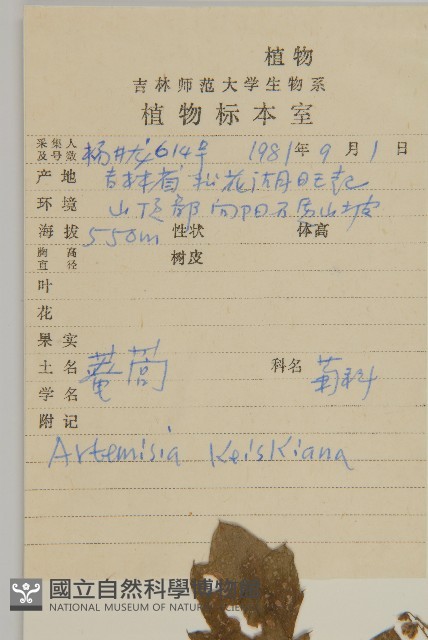 植物
吉林师范大学生物系
植物标本室
采集人及号数 杨 614号 1981年9月1日
产地 吉林省松花湖
环境 山顶部向阳石质山坡
海拔 550m 性状 体高
胸高直径 树皮
叶
花
果实
土名 菴蒿 科名 菊科
学名
附记
Artemisia Keiskiana
國立自然科學博物館
NATIONAL MUSEUM OF NATURAL SCIENCE